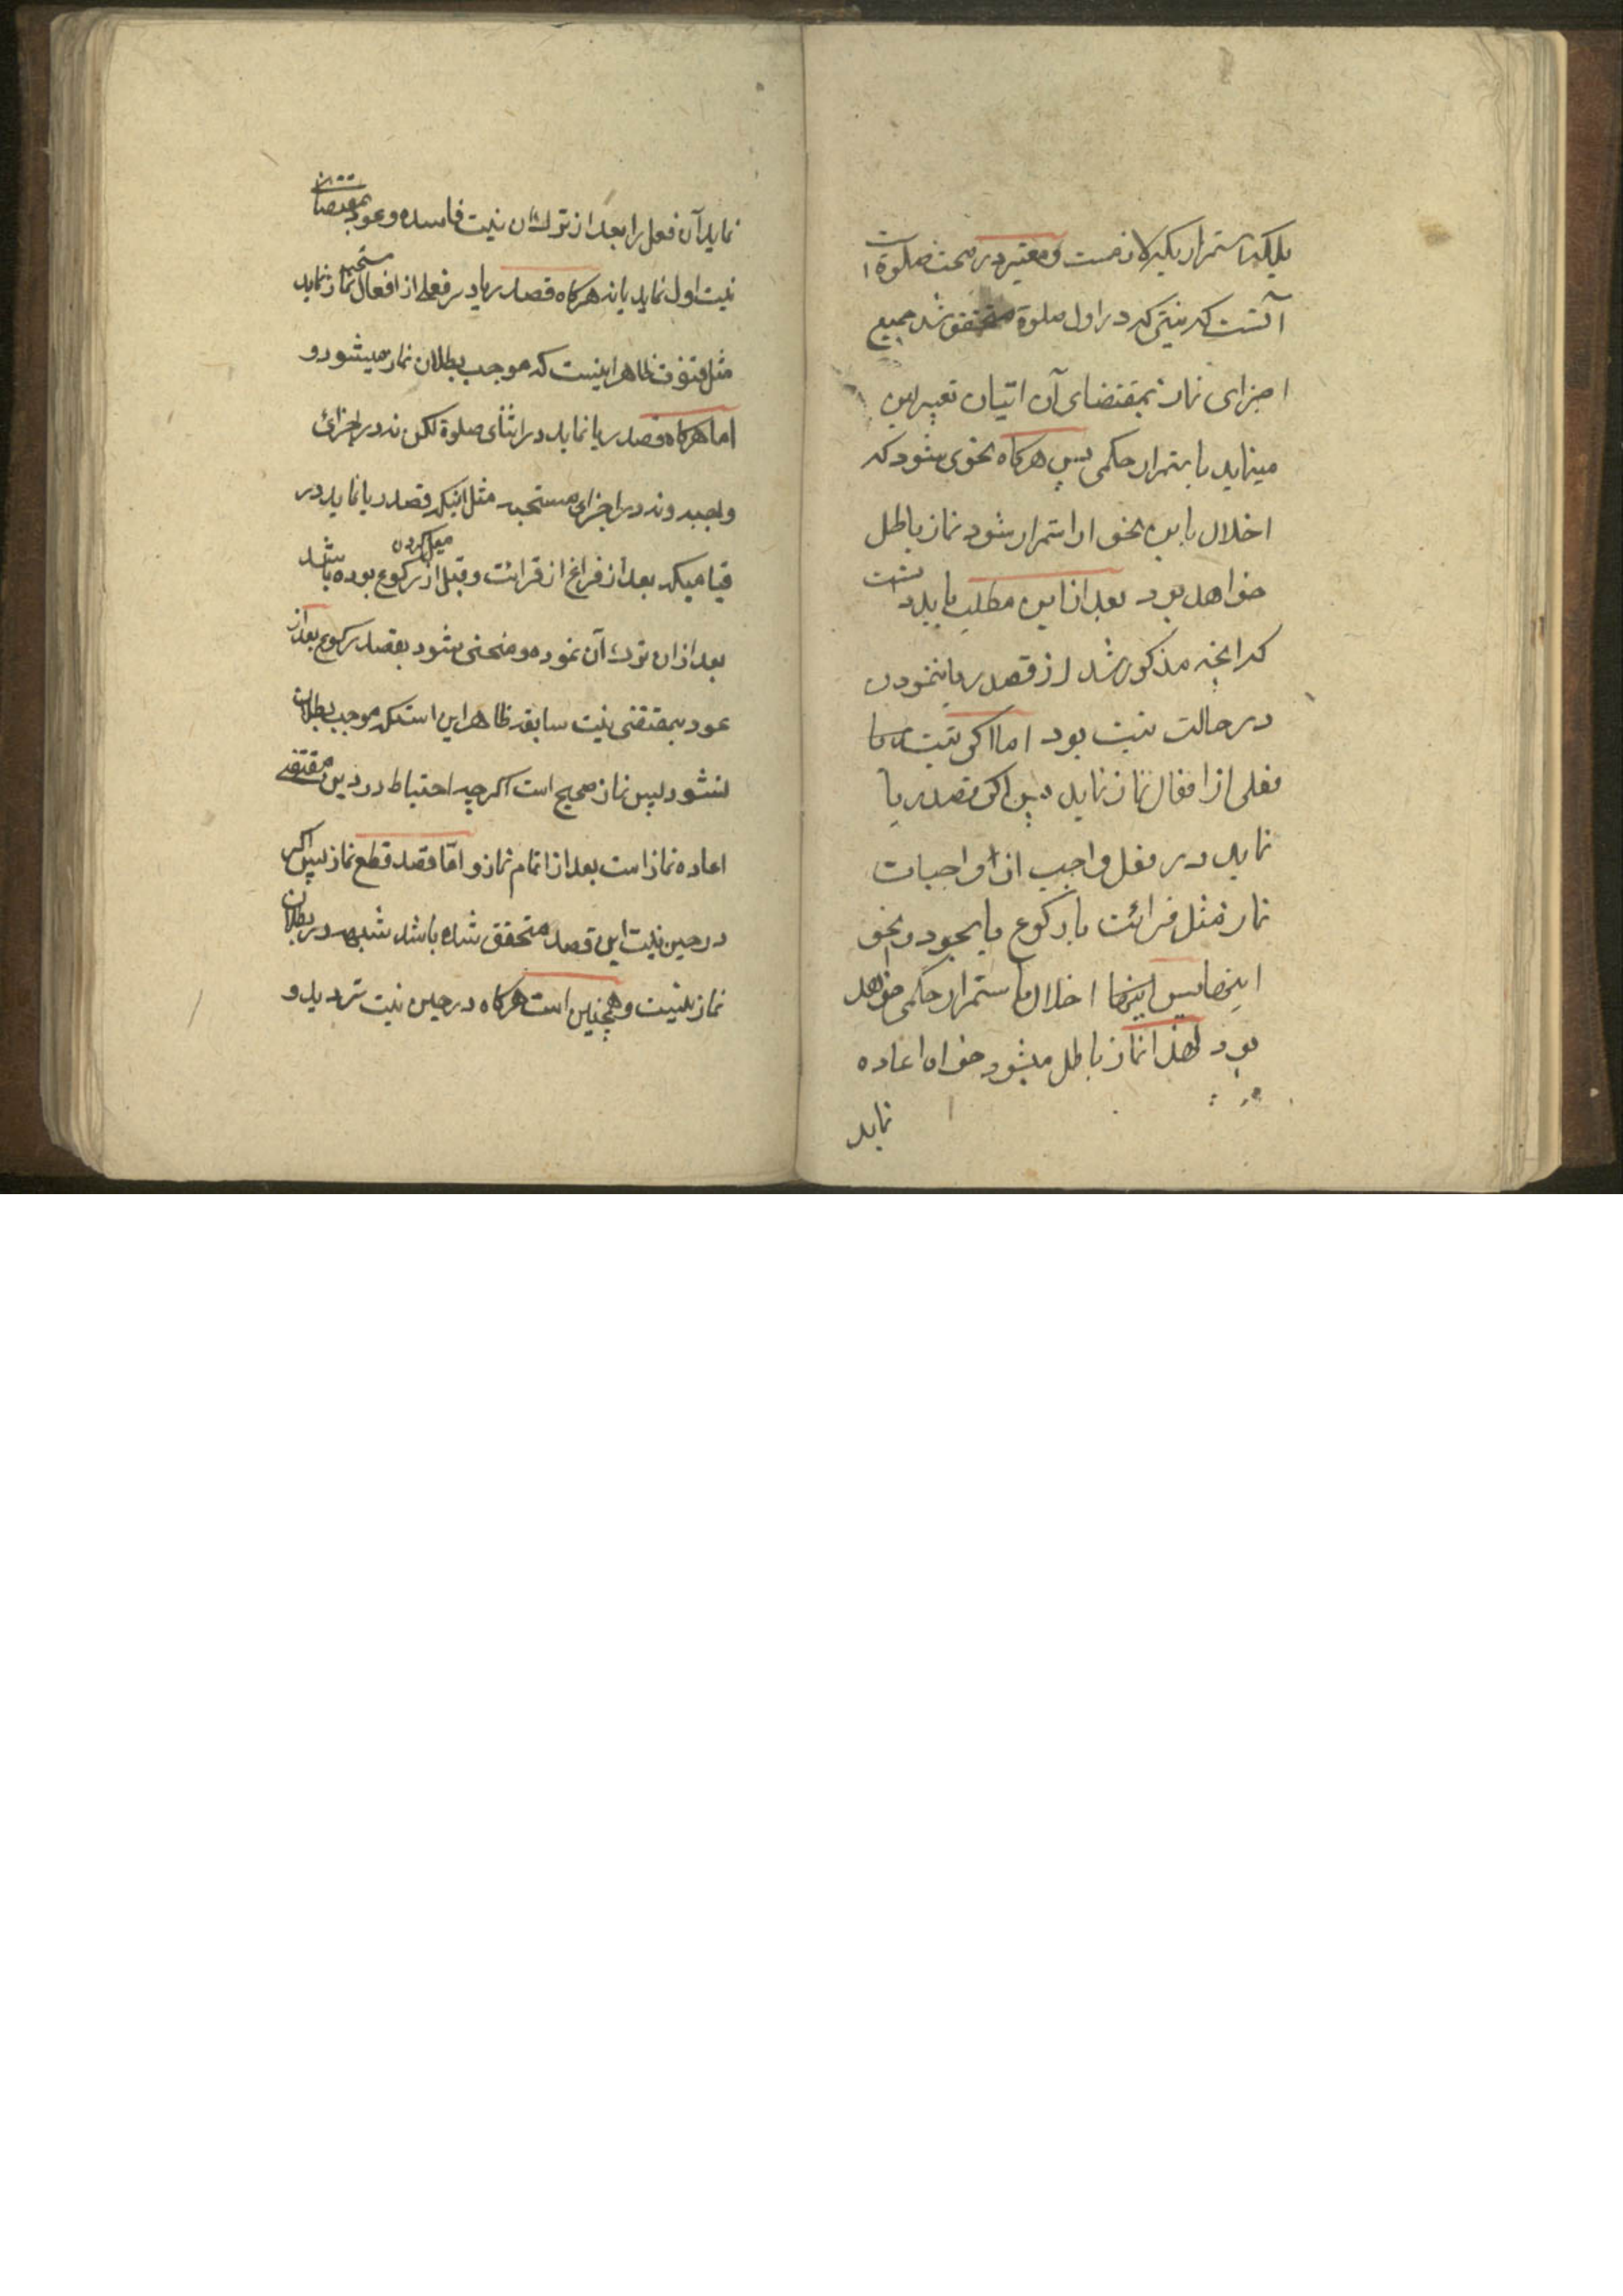 بلکه استمرار یکه لازمست و معتبر در صحت صلوة است
آنست که نیتی که در اول صلوة متحقق شد جمیع
اجزای نماز بمقتضای آن اتیان تعبیر این
مینماید باستمرار حکمی پس هرکاه نحوی بشود که
اخلال باین نحو از استمرار شود نماز باطل
خواهد بود بعد از این مطلب باید دانست
که آنچه مذکور شد از قصد ریا ننمودن
در حالت نیت بود اما اکر نیت ریا
فعلی از افعال نماز نماید پس اکر قصد ریا
نماید در فعل واجب از واجبات
نماز مثل قرائت یا رکوع یا سجود و نحو
اینها پس اینها اخلال باستمرار حکمی خواهد
بود لهذا نماز باطل میشود خواه اعاده
نماید
نماید آن فعل را بعد از ترک آن نیت فاسده و عود بمقتضای
نیت اول نماید یا نه هرکاه قصد ریا در فعلی از افعال مستحبه نماز نماید
مثل قنوت ظاهر اینست که موجب بطلان نماز میشود و
اما هرکاه قصد ریا نماید در اثنای صلوة لکن نه در اجزای
واجبه و نه در اجزای مستحبه مثل اینکه قصد ریا نماید در
قیامیکه بعد از فراغ از قرائت و قبل از میل کردن رکوع بوده باشد
بعد از ان ترک آن نموده و منحنی شود بقصد رکوع بعد از
عود بمقتضی نیت سابقه ظاهر این استکه موجب بطلان
نشود پس نماز صحیح است اکرچه احتیاط در دین مقتضی
اعاده نماز است بعد از اتمام نماز و امّا قصد قطع نماز پس اکر
در حین نیت این قصد متحقق شده باشد شبهه در بطلان
نماز نیست و همچنین است هرکاه در حین نیت تردید و